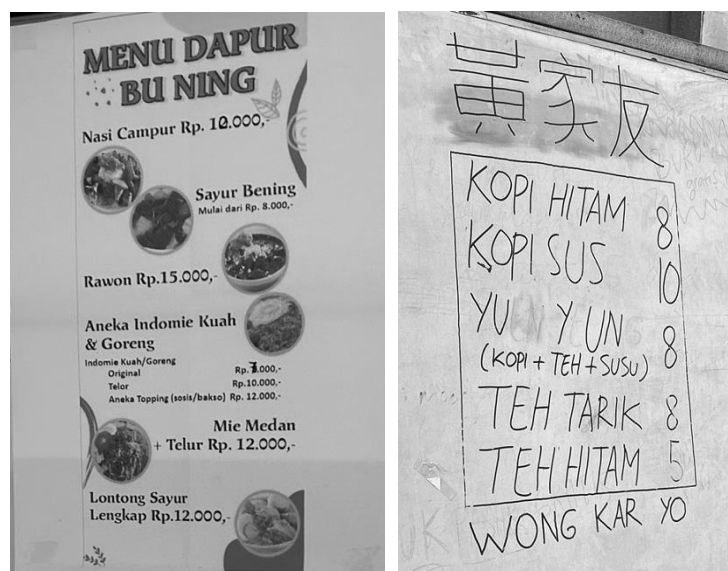 MENU DAPUR
BU NING
Nasi Campur Rp. 12.000,-
Sayur Bening
Mulai dari Rp. 8.000,-
Rawon Rp.15.000,-
Aneka Indomie Kuah
& Goreng
Indomie Kuah/Goreng
Original Rp.7.000,-
Telor Rp.10.000,-
Aneka Topping (sosis/bakso) Rp. 12.000,-
Mie Medan
+ Telur Rp. 12.000,-
Lontong Sayur
Lengkap Rp.12.000,-
黃家友
KOPI HITAM 8
KOPI SUS 10
YU YUN 8
(KOPI + TEH + SUSU)
TEH TARIK 8
TEH HITAM 5
WONG KAR YO